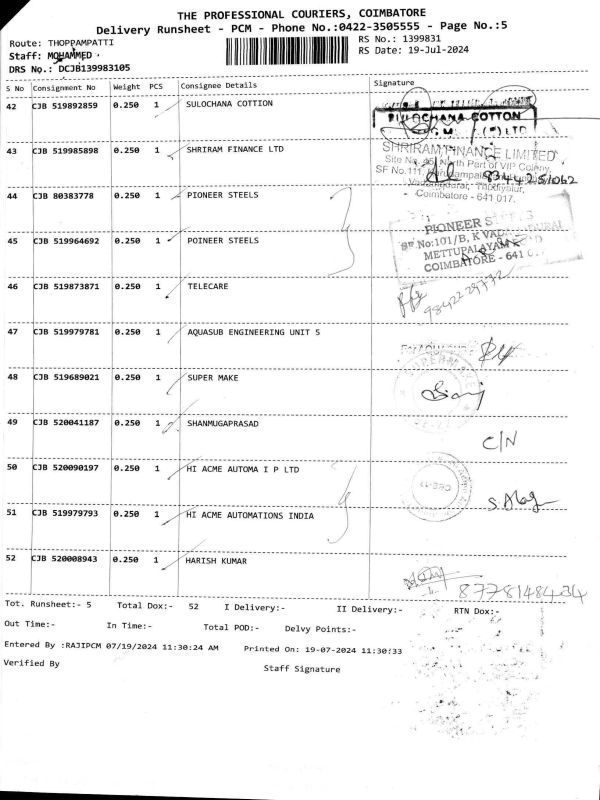 THE PROFESSIONAL COURIERS, COIMBATORE
Delivery Runsheet - PCM - Phone No.:0422-3505555 - Page No.:5
Route: THOPPAMPATTI
RS No.: 1399831
Staff: MOHAMMED
RS Date: 19-Jul-2024
DRS No.: DCJB139983105
S No Consignment No Weight PCS Consignee Details Signature
42 CJB 519892859 0.250 1 SULOCHANA COTTION
SULOCHANA COTTON
(P) LTD
43 CJB 519985898 0.250 1 SHRIRAM FINANCE LTD
SHRIRAM FINANCE LIMITED
Site No. 45, North Part of VIP Colony,
SF No.111,
9344251062
Coimbatore - 641 017.
44 CJB 80383778 0.250 1 PIONEER STEELS
PIONEER
45 CJB 519964692 0.250 1 POINEER STEELS
SF No:101/B, K
METTUPALAYAM
COIMBATORE - 641
46 CJB 519873871 0.250 1 TELECARE
9842229772
47 CJB 519979781 0.250 1 AQUASUB ENGINEERING UNIT 5
48 CJB 519689021 0.250 1 SUPER MAKE
49 CJB 520041187 0.250 1 SHANMUGAPRASAD
C/N
50 CJB 520090197 0.250 1 HI ACME AUTOMA I P LTD
51 CJB 519979793 0.250 1 HI ACME AUTOMATIONS INDIA
52 CJB 520008943 0.250 1 HARISH KUMAR
8778148434
Tot. Runsheet:- 5 Total Dox:- 52 I Delivery:- II Delivery:- RTN Dox:-
Out Time:- In Time:- Total POD:- Delvy Points:-
Entered By :RAJIPCM 07/19/2024 11:30:24 AM Printed On: 19-07-2024 11:30:33
Verified By Staff Signature